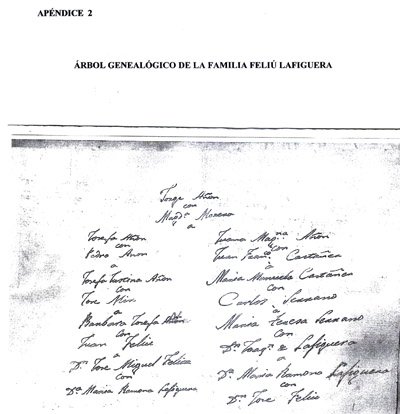 APÉNDICE 2
ÁRBOL GENEALÓGICO DE LA FAMILIA FELIÚ LAFIGUERA
Jorge Añon
con
Magd.ª Moreno
a
Josefa Añon
con
Pedro Anon
a
Josefa Añon
con
Jose Mir
a
Barbara Josefa Añon
con
Juan Feliu
a
D.n Jose Miguel Feliu
con
D.ª Maria Ramona Lafiguera
Juana Mag.na Añon
con
Juan Fran.co Castañea
a
Maria Manuela Castañea
con
Carlos Serrano
a
Maria Teresa Serrano
con
D.n Joaq.n Lafiguera
a
D.ª Maria Ramona Lafiguera
con
D.n Jose Feliu